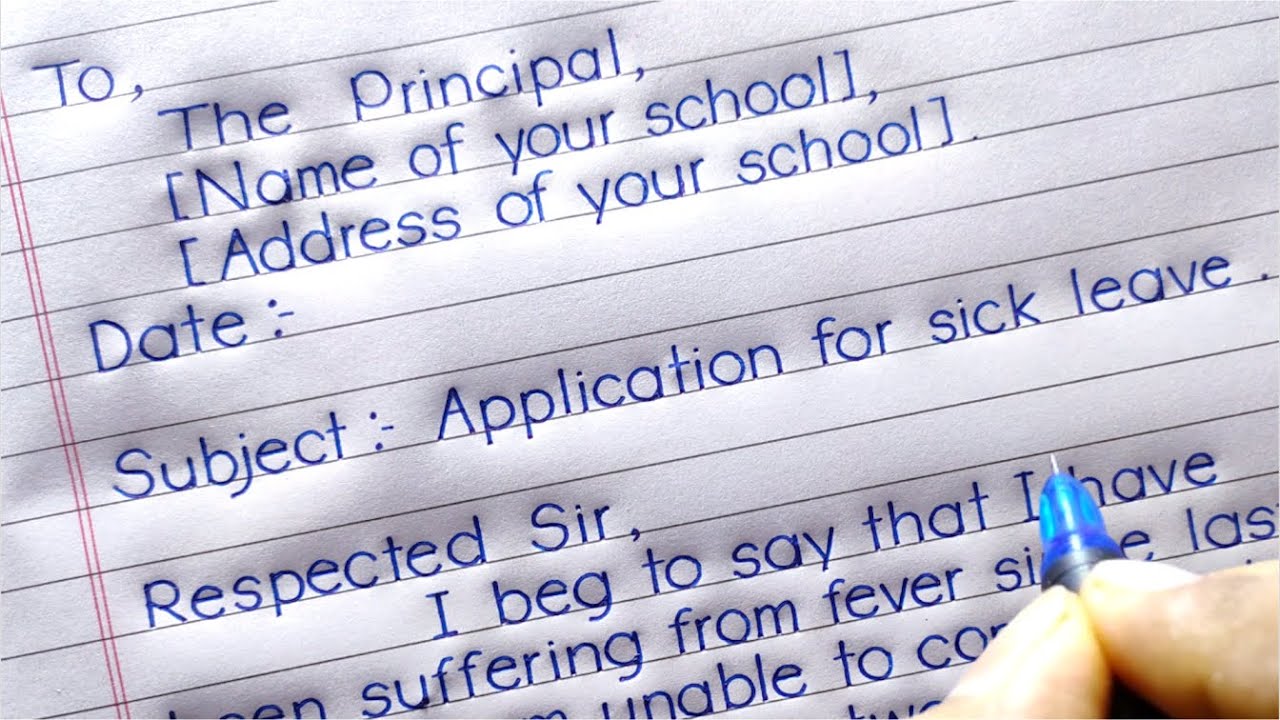 To,
The Principal,
[Name of your school],
[Address of your school].
Date :-
Subject :- Application for sick leave .
Respected Sir,
I beg to say that I have
suffering from fever
unable to